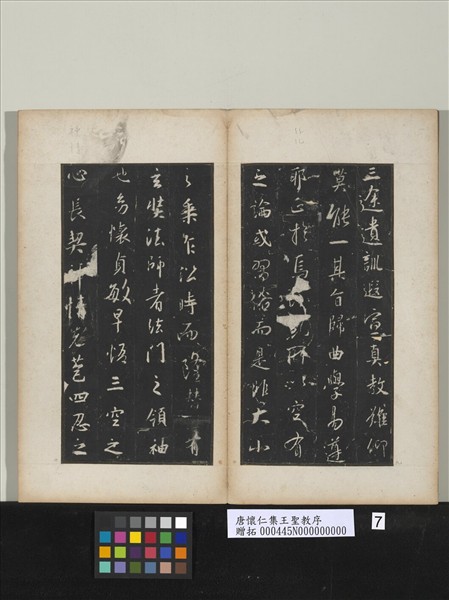 三途遺訓遐宣真教難仰
莫能一其旨歸曲學易遵
耶正於焉糺所以空有
之論或習俗而是非大小
之乘乍沿時而隆替有
玄奘法師者法門之領袖
也幼懷貞敏早悟三空之
心長契神情先苞四忍之
唐懷仁集王聖教序
贈拓 000445N000000000
7